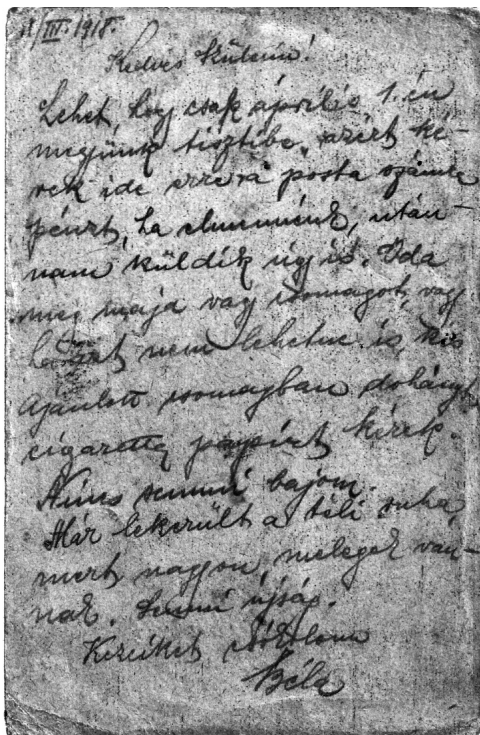 11/III. 1918.
Kedves Szüleim!
Lehet, hogy csak április 1.-én
megyünk tisztibe, azért ké-
rek ide erre a posta számra
pénzt, ha elmennénk, után-
nam küldik úgy is. Oda
meg majd vagy csomagot, vagy
ha nem lehetne is, kis
ajánlott csomagban dohányt
cigaretta papírt kérek.
Nincs semmi bajom.
Már lekerült a téli ruha,
mert nagyon melegek van-
nak. Semmi újság.
Kezeiket csókolom
Béla